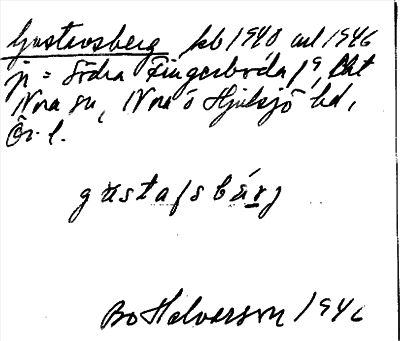 Gustavsberg kb 1940 avl 1946
p = Södra Fingerboda 1 9,
Nora sn, Nora o Hjulsjö hd,
Ör. l.
gustafsbärj
Bo Halvarson 1946